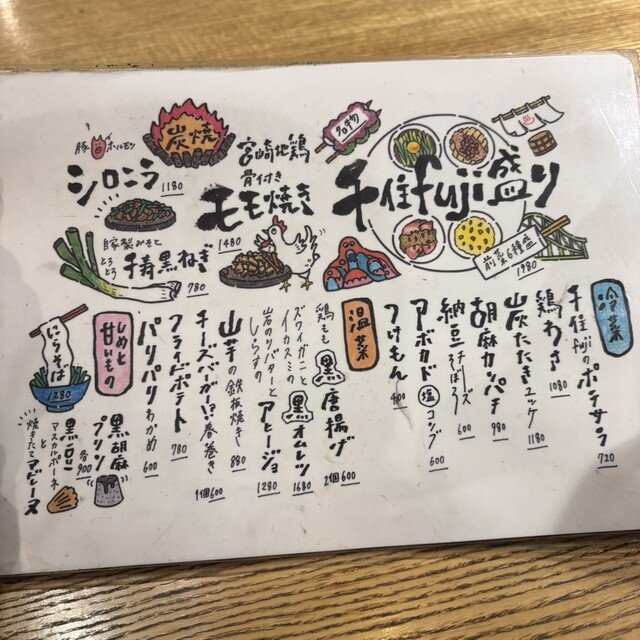 炭焼
豚ホルモン
シロニラ 1180
宮崎地鶏
骨付き
モモ焼き
1480
名物
千住fuji盛り
前菜6種盛
1980
自家製みそと
とろとろ
千寿黒ねぎ
780
冷菜
千住fujiのポテサラ 720
鶏わさ 1080
炭たたきユッケ 1180
胡麻カンパチ 980
納豆チーズそぼろ 600
アボカド塩コンブ 600
つけもん 400
温菜
鶏もも黒唐揚げ 2個600
ズワイガニと
イカスミの黒オムレツ 1680
岩のりバターと
しらすのアヒージョ 1280
山芋の鉄板焼き 880
チーズバーガー!?春巻き 1個600
フライドポテト 780
パリパリわかめ 600
しめと甘いもの
にらそば
1280
黒胡麻プリン
各900
黒豆と
マスカルポーネ
焼きたてマドレーヌ